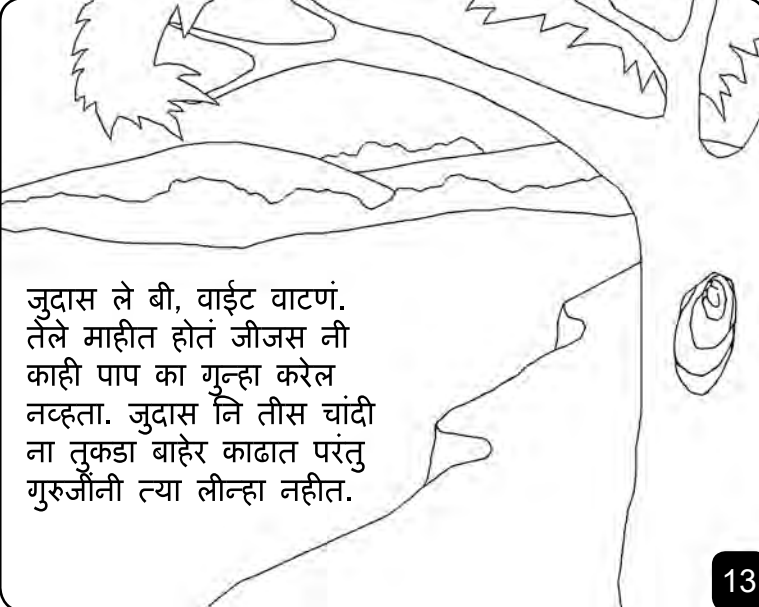 जुदास ले बी, वाईट वाटणं.
तेले माहीत होतं जीजस नी
काही पाप का गुन्हा करेल
नव्हता. जुदास नि तीस चांदी
ना तुकडा बाहेर काढात परंतु
गुरुजींनी त्या लीन्हा नहीत.
13